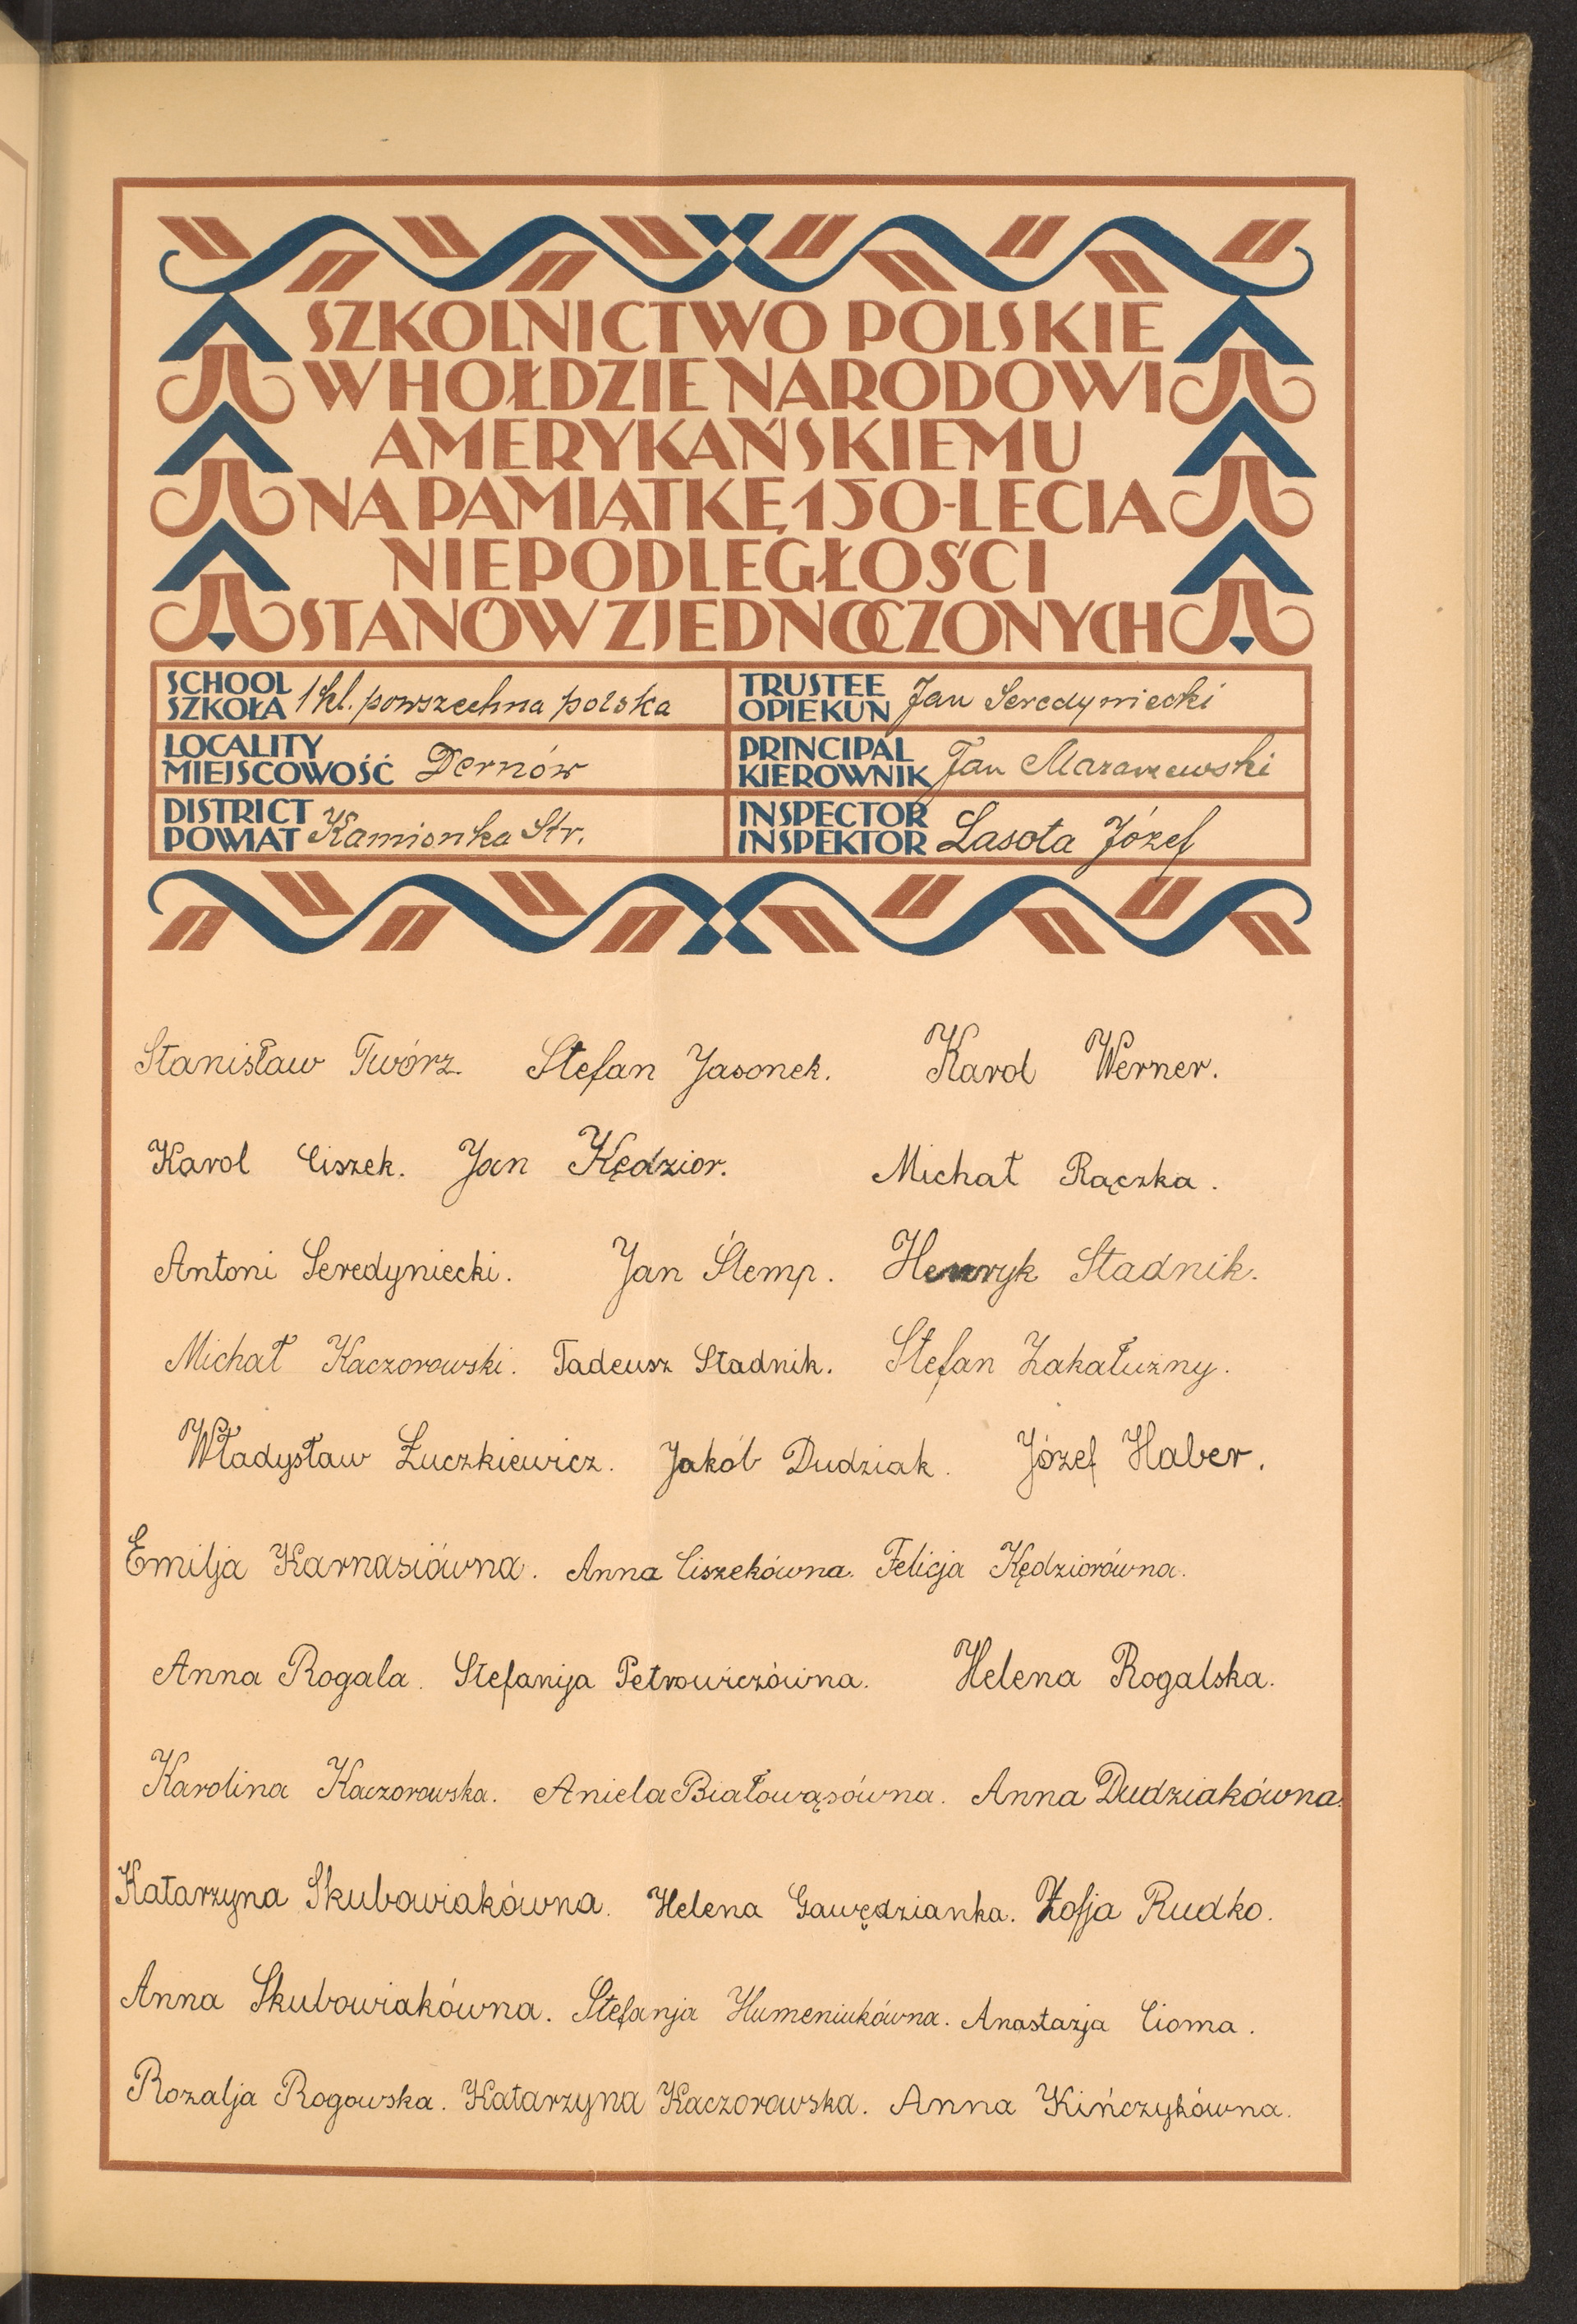 SZKOLNICTWO POLSKIE
W HOŁDZIE NARODOWI
AMERYKAŃSKIEMU
NA PAMIĄTKĘ 150-LECIA
NIEPODLEGŁOŚCI
STANÓW ZJEDNOCZONYCH
SCHOOL SZKOŁA 1 kl. powszechna polska
TRUSTEE OPIEKUN Jan Seredyniecki
LOCALITY MIEJSCOWOŚĆ Dernów
PRINCIPAL KIEROWNIK Jan
DISTRICT POWIAT Kamionka Str.
INSPECTOR INSPEKTOR Lasota Józef
Stanisław Twórz. Stefan Jasonek. Karol Werner.
Karol Ciszek. Jan Kędzior. Michał Rączka.
Antoni Seredyniecki. Jan Ślemp. Henryk Stadnik.
Michał Kaczorowski. Tadeusz Stadnik. Stefan Zakałużny.
Władysław Łuczkiewicz. Jakób Dudziak. Józef Haber.
Emilja Karnasiówna. Anna Ciszekówna. Felicja Kędziorówna.
Anna Rogala. Stefanija Petrowiczówna. Helena Rogalska.
Karolina Kaczorowska. Aniela Białowąsówna. Anna Dudziakówna.
Katarzyna Skubowiakówna. Helena Gawędzianka. Zofja Rudko.
Anna Skubowiakówna. Stefanja Humeniukówna. Anastazja Cioma.
Rozalja Rogowska. Katarzyna Kaczorowska. Anna Kińczykówna.